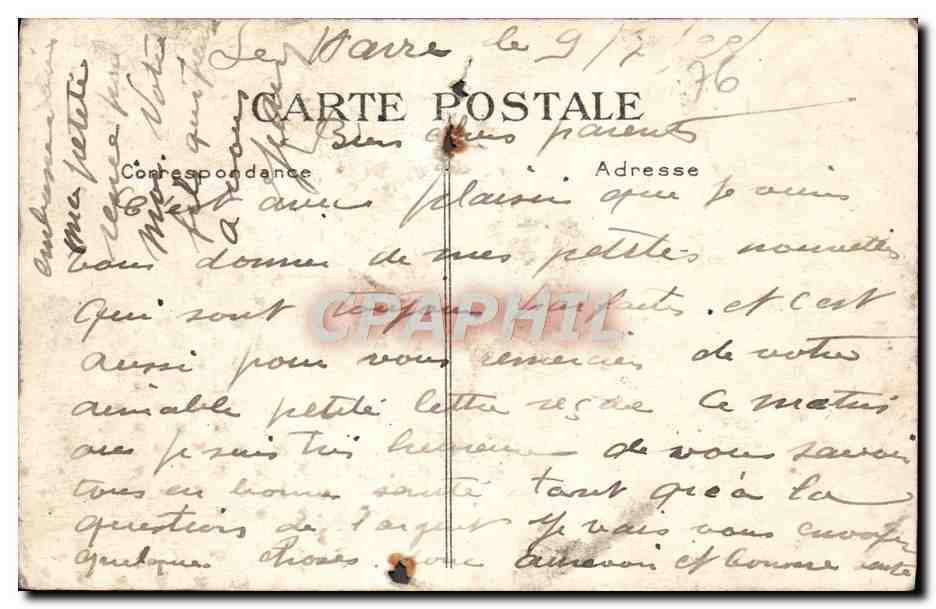 Le Havre le 9/7
76
CARTE POSTALE
Bien chers parents
Correspondance
Adresse
C'est avec plaisir que je viens
vous donner de mes petites nouvelles
qui sont toujours parfaites. et c'est
CPAPHIL
aussi pour vous remercier de votre
aimable petite lettre reçue ce matin
je suis très heureux de vous savoir
tous en bonne santé tant que à la
question de l'argent je vais vous envoyer
quelques choses. aurevoir et bonne santé
ma petite
moi Votre
fils qui